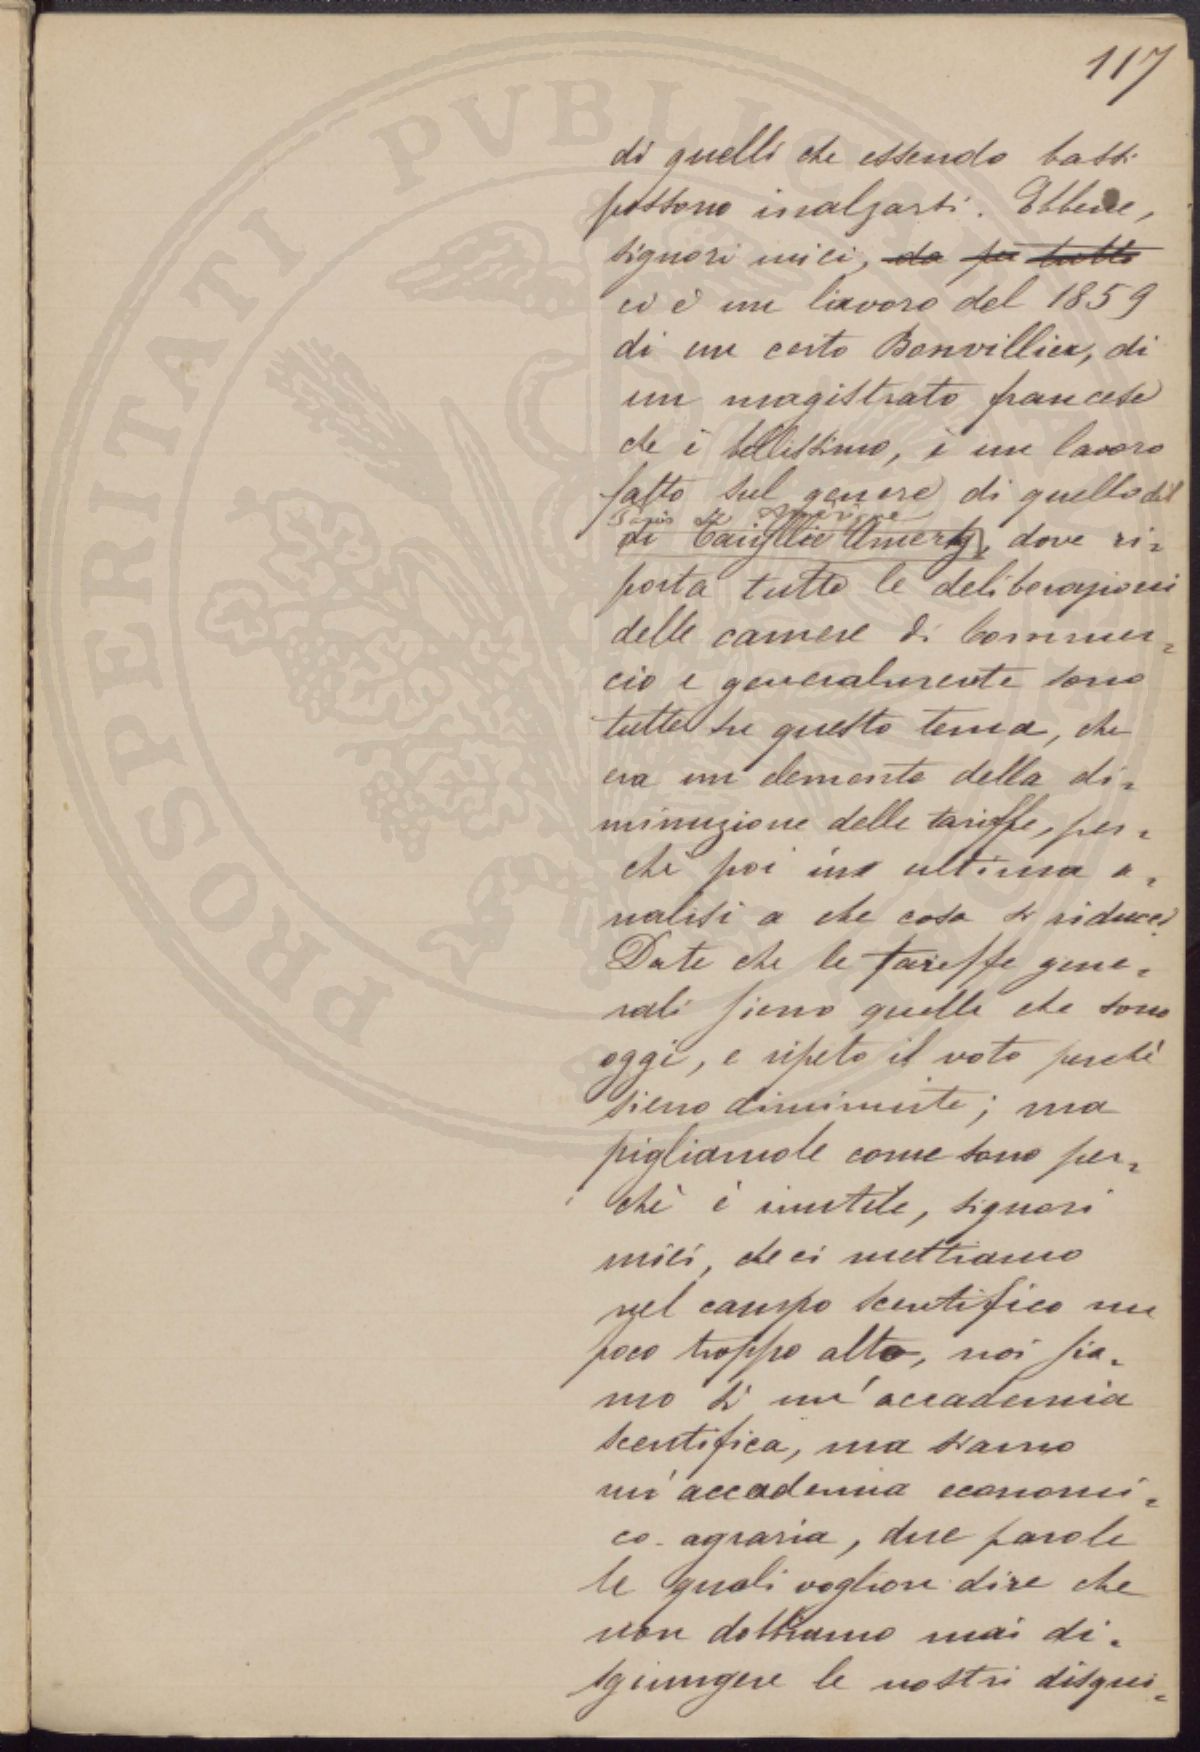 117
di quelli che essendo bassi
possono inalzarsi. Ebbene,
signori miei, da per tutto
ci è un lavoro del 1859
di un certo Bonvillier, di
un magistrato francese
che è bellissimo, è un lavoro
fatto sul genere di quello del
di dove ri=
porta tutte le deliberazioni
delle camere di Commer=
cio e generalmente sono
tutte su questo tema, che
era un elemento della di=
minuzione delle tariffe, per=
chè poi in ultima a=
nalisi a che cosa si riduce?
Date che le tariffe gene=
rali sieno quelle che sono
oggi, e ripeto il voto perchè
sieno diminuite; ma
pigliamole come sono per=
chè è inutile, signori
miei, che ci mettiamo
nel campo scentifico un
poco troppo alto, noi sia=
mo sì un'accademia
scentifica, ma siamo
un'accademia economi=
co-agraria, due parole
le quali vogliono dire che
non dobbiamo mai di=
sgiungere le nostri disqui=
PROSPERITATI PVBLICAE